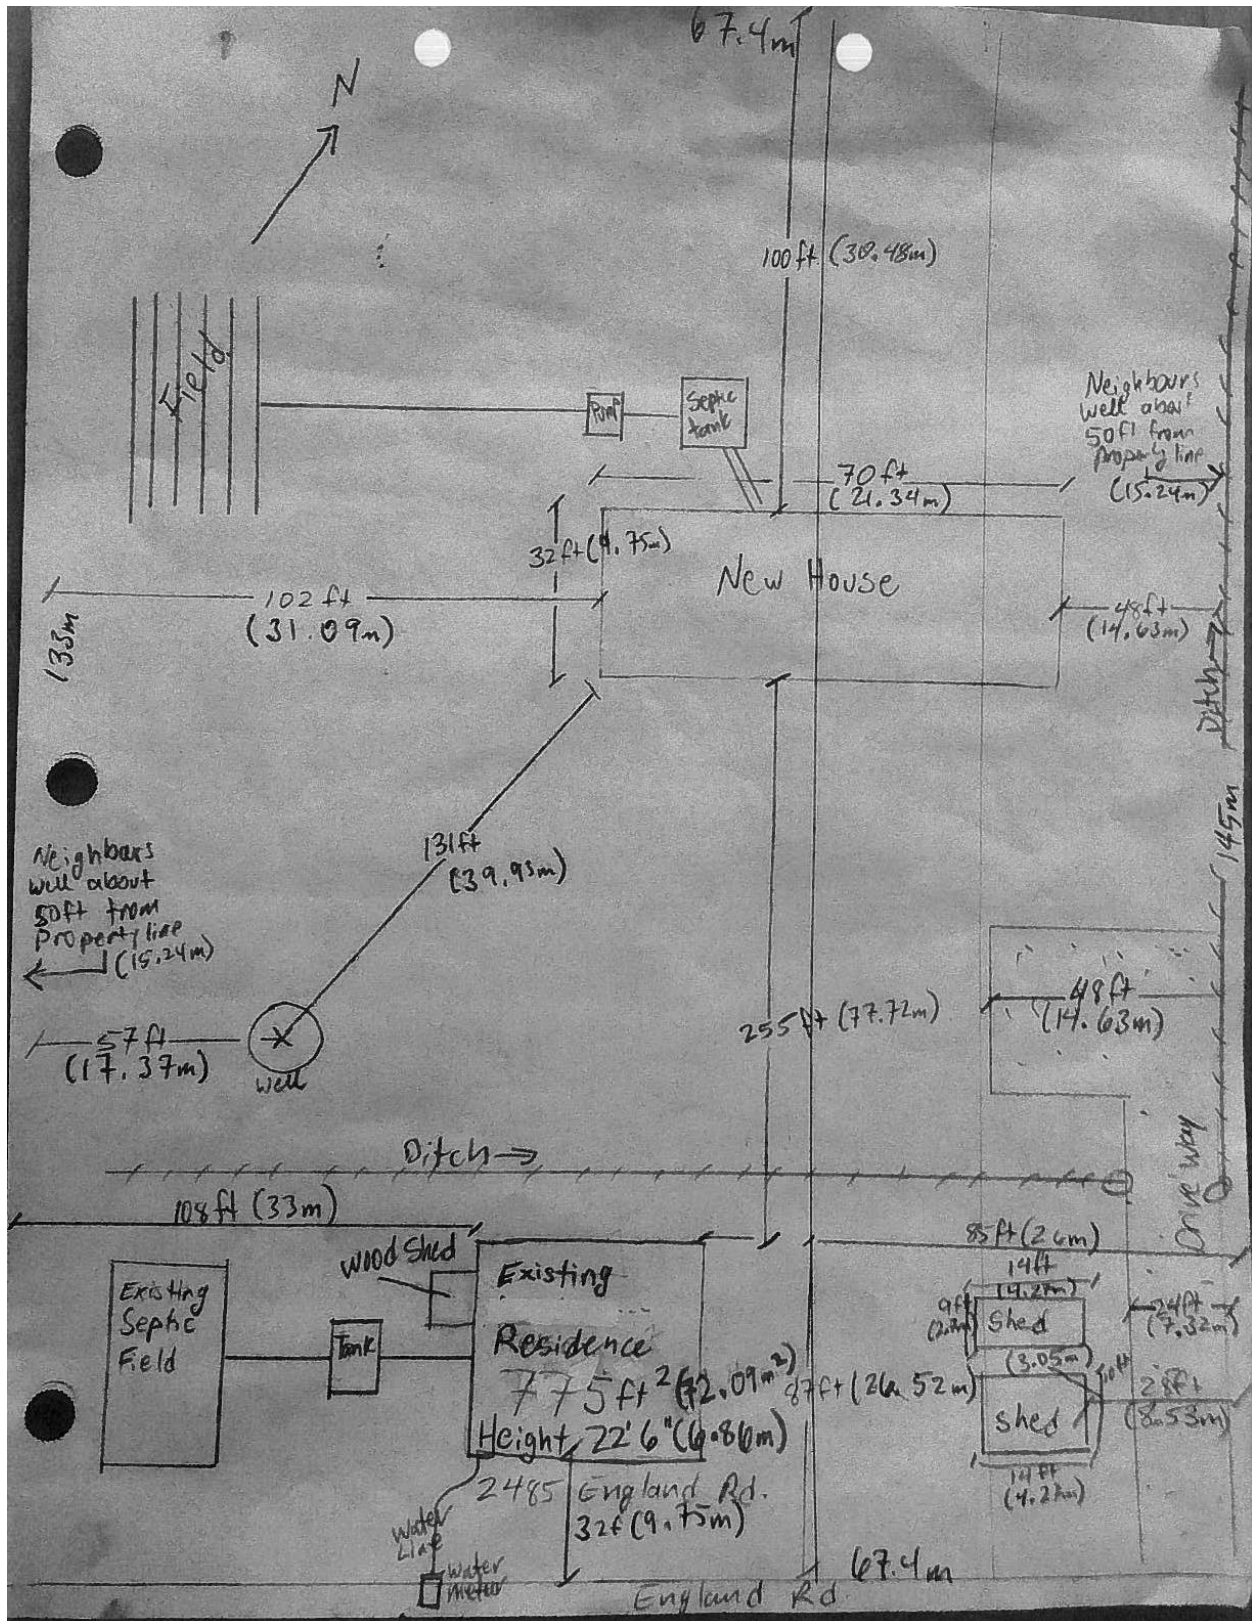 67.4m
N
100ft (30.48m)
Field
Pump
Septic
tank
Neighbours
well about
50ft from
property line
(15.24m)
70ft
(21.34m)
32ft (9.75m)
New House
102 ft
(31.09m)
48ft
(14.63m)
133m
Ditch →
145m
131ft
(39.93m)
Neighbars
well about
50ft from
Property line
(15.24m)
48ft
(14.63m)
255ft (77.72m)
57ft
(17.37m)
well
Ditch →
Drive way
108ft (33m)
85ft (26m)
Wood Shed
14ft
(4.27m)
Existing
Septic
Field
Tank
Existing
Residence
775ft² (72.09m²)
Height 22'6" (6.86m)
87ft (26.52m)
9ft
Shed
24ft
(7.32m)
(3.05m)
10ft
Shed
28ft
(8.53m)
14ft
(4.27m)
2485 England Rd.
32f (9.75m)
Water
Line
Water
meter
67.4m
England Rd